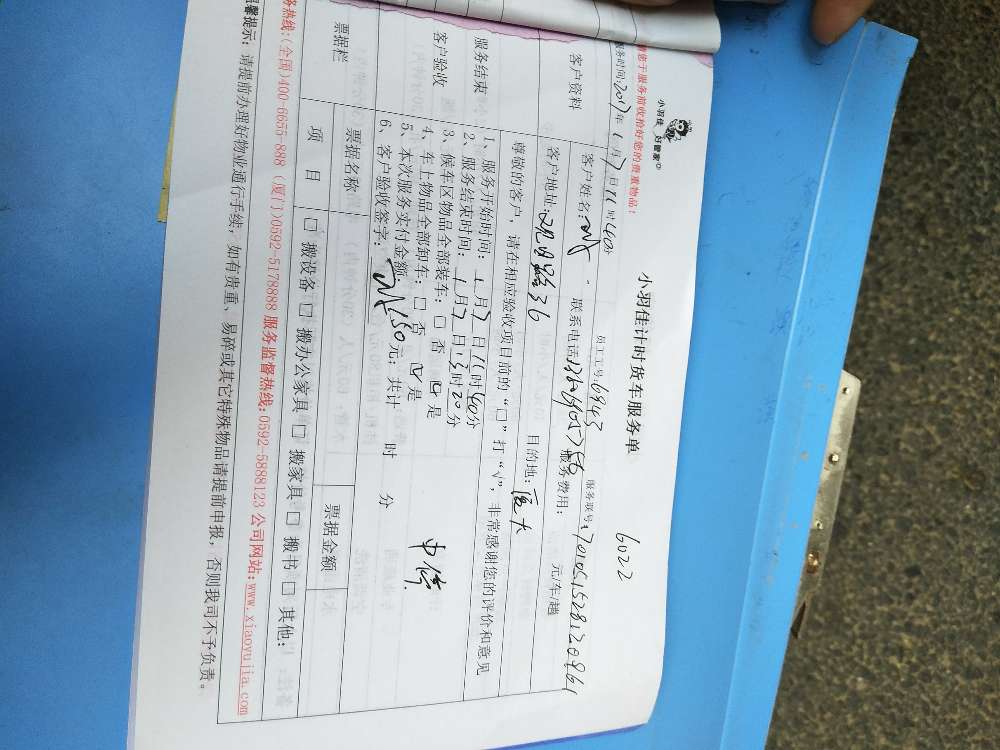 小羽佳 好管家
小羽佳计时货车服务单
6022
请您于服务前收拾好您的贵重物品:
员工工号:6943
服务时间:2017年1月7日11时40分
客户资料
客户姓名:
联系电话
服务费用: 元/车/趟
客户地址:观日路36
目的地:
尊敬的客户,请在相应验收项目前的“□”打“√”,非常感谢您的评价和意见
服务结束
客户验收
1、服务开始时间:1月7日11时40分
2、服务结束时间:1月7日13时20分
3、候车区物品全部装车:□ 否 ☑ 是
4、车上物品全部卸车:□ 否 ☑ 是
5、本次服务实付金额:150元;共计 时 分
6、客户验收签字:
票据栏
票据名称
票据金额
项 目
□ 搬设备 □ 搬办公家具 □ 搬家具 □ 搬书 □ 其他:
服务热线:(全国)400-6655-888 (厦门)0592-5178888 服务监督热线:0592-5888123 公司网站:www.xiaoyujia.com
温馨提示:请提前办理好物业通行手续,如有贵重、易碎或其它特殊物品请提前申报,否则我司不予负责。